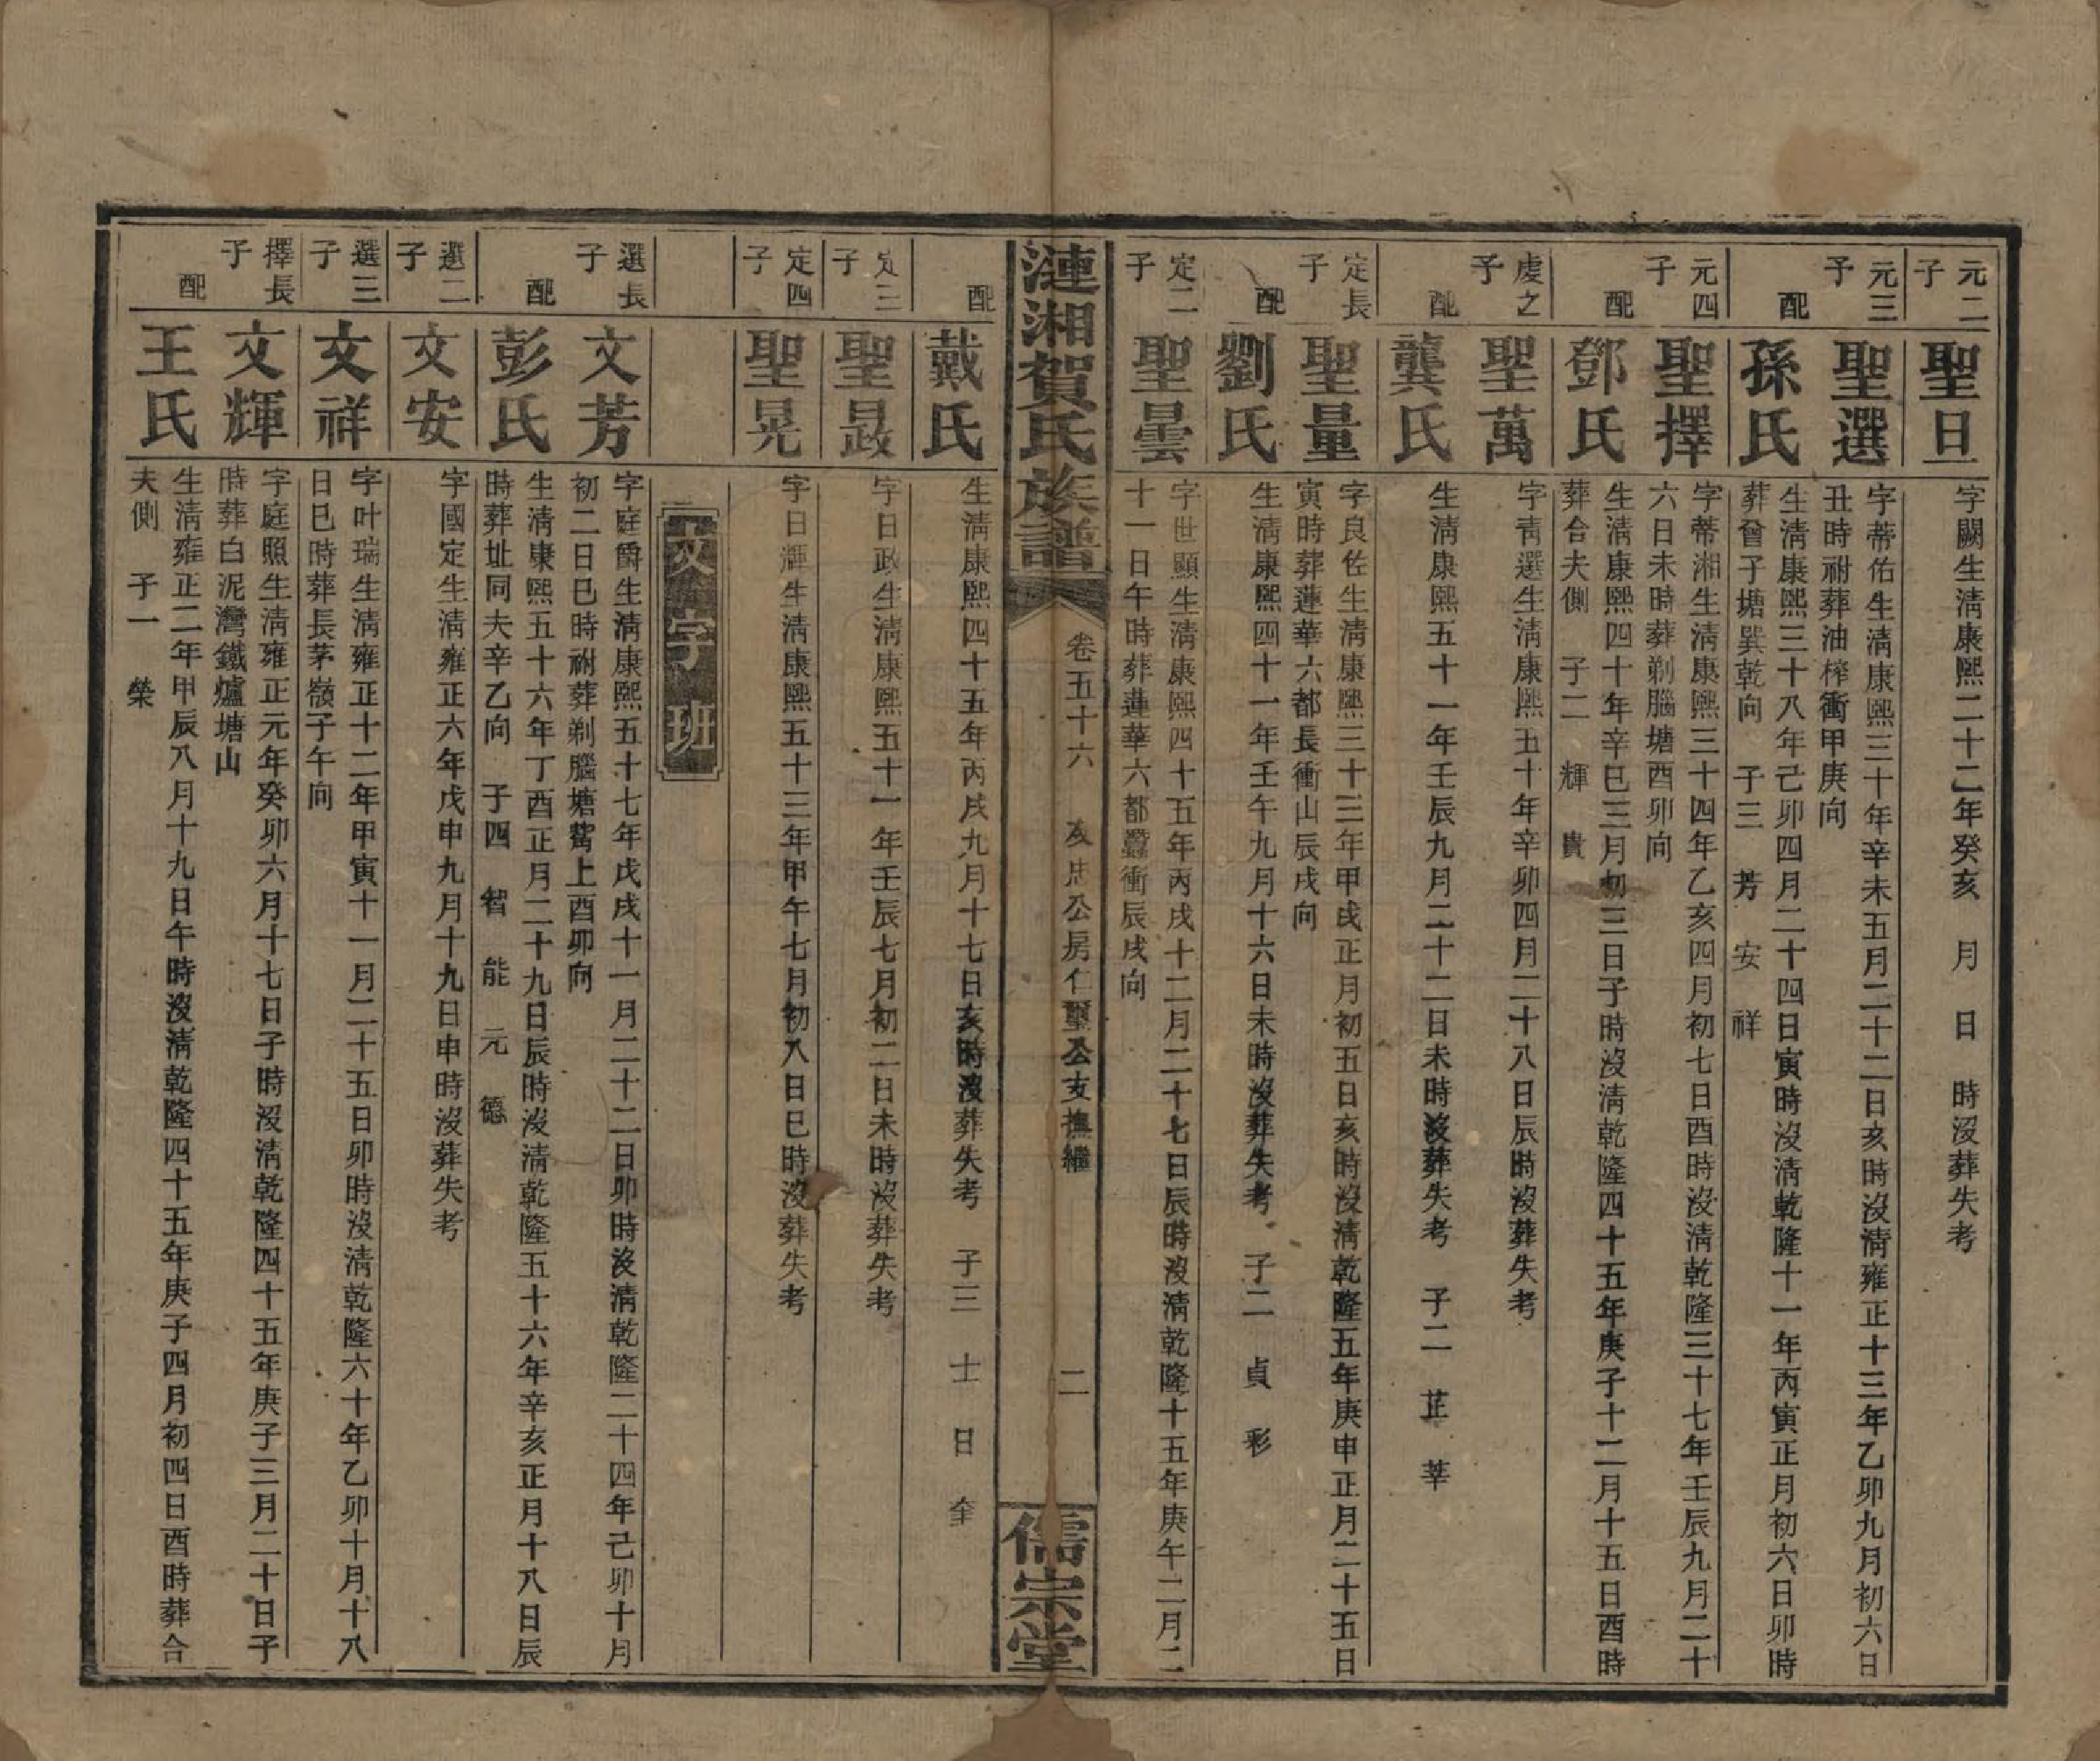 元二子
聖旦
字闕生淸康熙二十二年癸亥　月　日　時沒葬失考
元三子
聖選
字蒂佑生淸康熙三十年辛未五月二十二日亥時沒淸雍正十三年乙卯九月初六日
丑時祔葬油榨衝甲庚向
配
孫氏
生淸康熙三十八年己卯四月二十四日寅時沒淸乾隆十一年丙寅正月初六日卯時
葬曾子塘巽乾向　子三　芳　安　祥
元四子
聖擇
字蒂湘生淸康熙三十四年乙亥四月初七日酉時沒淸乾隆三十七年壬辰九月二十
六日未時葬剃腦塘酉卯向
配
鄧氏
生淸康熙四十年辛巳三月初三日子時沒淸乾隆四十五年庚子十二月十五日酉時
葬合夫側　子二　輝　貴
虔之子
聖萬
字靑選生淸康熙五十年辛卯四月二十八日辰時沒葬失考
配
龔氏
生淸康熙五十一年壬辰九月二十二日未時沒葬失考　子二　芷　莘
定長子
聖量
字良佐生淸康熙三十三年甲戌正月初五日亥時沒淸乾隆五年庚申正月二十五日
寅時葬蓮華六都長衝山辰戌向
配
劉氏
生淸康熙四十一年壬午九月十六日未時沒葬失考　子二　貞　彩
定二子
聖曇
字世顯生淸康熙四十五年丙戌十二月二十七日辰時沒淸乾隆十五年庚午二月二
十一日午時葬蓮華六都蠶衝辰戌向
漣湘賀氏族譜
卷五十六　友忠公房仁璽公支撫繼
二
儒宗堂
配
戴氏
生淸康熙四十五年丙戌九月十七日亥時沒葬失考　子三　士　日　奎
定三子
聖晸
字日政生淸康熙五十一年壬辰七月初二日未時沒葬失考
定四子
聖晃
字日輝生淸康熙五十三年甲午七月初八日巳時沒葬失考
文字班
選長子
文芳
字庭爵生淸康熙五十七年戊戌十一月二十二日卯時沒淸乾隆二十四年己卯十月
初二日巳時祔葬剃腦塘上酉卯向
配
彭氏
生淸康熙五十六年丁酉正月二十九日辰時沒淸乾隆五十六年辛亥正月十八日辰
時葬址同夫辛乙向　子四　智　能　元　德
選二子
文安
字國定生淸雍正六年戊申九月十九日申時沒葬失考
選三子
文祥
字叶瑞生淸雍正十二年甲寅十一月二十五日卯時沒淸乾隆六十年乙卯十月十八
日巳時葬長茅嶺子午向
擇長子
文輝
字庭照生淸雍正元年癸卯六月十七日子時沒淸乾隆四十五年庚子三月二十日子
時葬白泥灣鐵爐塘山
配
王氏
生淸雍正二年甲辰八月十九日午時沒淸乾隆四十五年庚子四月初四日酉時葬合
夫側　子一　榮